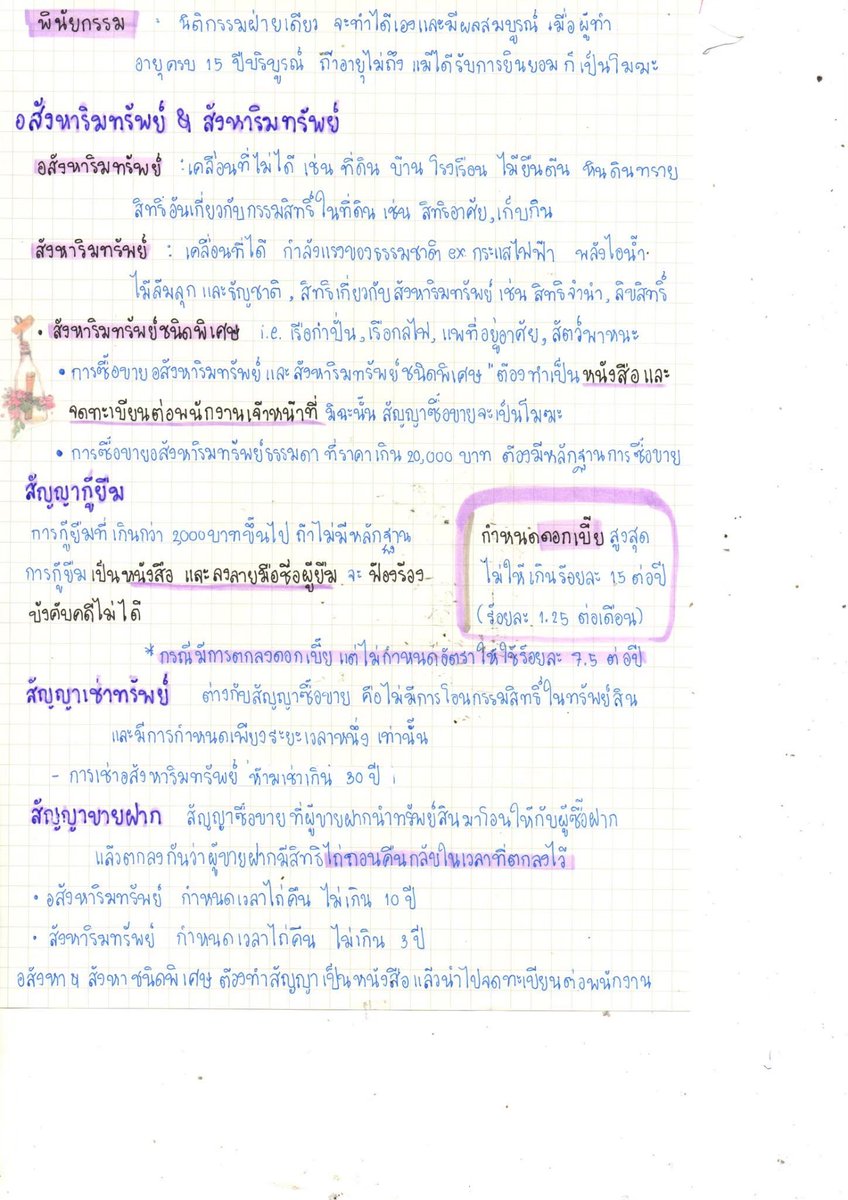 พินัยกรรม : นิติกรรมฝ่ายเดียว จะทำได้เองและมีผลสมบูรณ์ เมื่อผู้ทำ
อายุครบ 15 ปีบริบูรณ์ ถ้าอายุไม่ถึง แม้ได้รับการยินยอม ก็เป็นโมฆะ
อสังหาริมทรัพย์ & สังหาริมทรัพย์
อสังหาริมทรัพย์ : เคลื่อนที่ไม่ได้ เช่น ที่ดิน บ้าน โรงเรือน ไม้ยืนต้น หินดินทราย
สิทธิอันเกี่ยวกับกรรมสิทธิ์ในที่ดิน เช่น สิทธิอาศัย, เก็บกิน
สังหาริมทรัพย์ : เคลื่อนที่ได้ กำลังแรงของธรรมชาติ ex กระแสไฟฟ้า พลังไอน้ำ
ไม้ล้มลุก และธัญชาติ, สิทธิเกี่ยวกับสังหาริมทรัพย์ เช่น สิทธิจำนำ, ลิขสิทธิ์
• สังหาริมทรัพย์ชนิดพิเศษ i.e. เรือกำปั่น, เรือกลไฟ, แพที่อยู่อาศัย, สัตว์พาหนะ
• การซื้อขายอสังหาริมทรัพย์ และสังหาริมทรัพย์ชนิดพิเศษ " ต้องทำเป็นหนังสือและ
จดทะเบียนต่อพนักงานเจ้าหน้าที่ มิฉะนั้น สัญญาซื้อขายจะเป็นโมฆะ
• การซื้อขายอสังหาริมทรัพย์ธรรมดา ที่ราคาเกิน 20,000 บาท ต้องมีหลักฐานการซื้อขาย
สัญญากู้ยืม
การกู้ยืมที่เกินกว่า 2,000 บาทขึ้นไป ถ้าไม่มีหลักฐาน
การกู้ยืมเป็นหนังสือ และลงลายมือชื่อผู้ยืม จะ ฟ้องร้อง
บังคับคดีไม่ได้
กำหนดดอกเบี้ย สูงสุด
ไม่ให้เกินร้อยละ 15 ต่อปี
(ร้อยละ 1.25 ต่อเดือน)
* กรณีมีการตกลงดอกเบี้ย แต่ไม่กำหนดอัตรา ให้ใช้ร้อยละ 7.5 ต่อปี
สัญญาเช่าทรัพย์ ต่างกับสัญญาซื้อขาย คือไม่มีการโอนกรรมสิทธิ์ในทรัพย์สิน
และมีการกำหนดเพียงระยะเวลาหนึ่ง เท่านั้น
- การเช่าอสังหาริมทรัพย์ ห้ามเช่าเกิน 30 ปี
สัญญาขายฝาก สัญญาซื้อขาย ที่ผู้ขายฝากนำทรัพย์สินมาโอนให้กับผู้ซื้อฝาก
แล้วตกลงกันว่าผู้ขายฝากมีสิทธิไถ่ถอนคืนกลับในเวลาที่ตกลงไว้
• อสังหาริมทรัพย์ กำหนดเวลาไถ่คืน ไม่เกิน 10 ปี
• สังหาริมทรัพย์ กำหนดเวลาไถ่คืน ไม่เกิน 3 ปี
อสังหา & สังหาชนิดพิเศษ ต้องทำสัญญาเป็นหนังสือ แล้วนำไปจดทะเบียนต่อพนักงาน